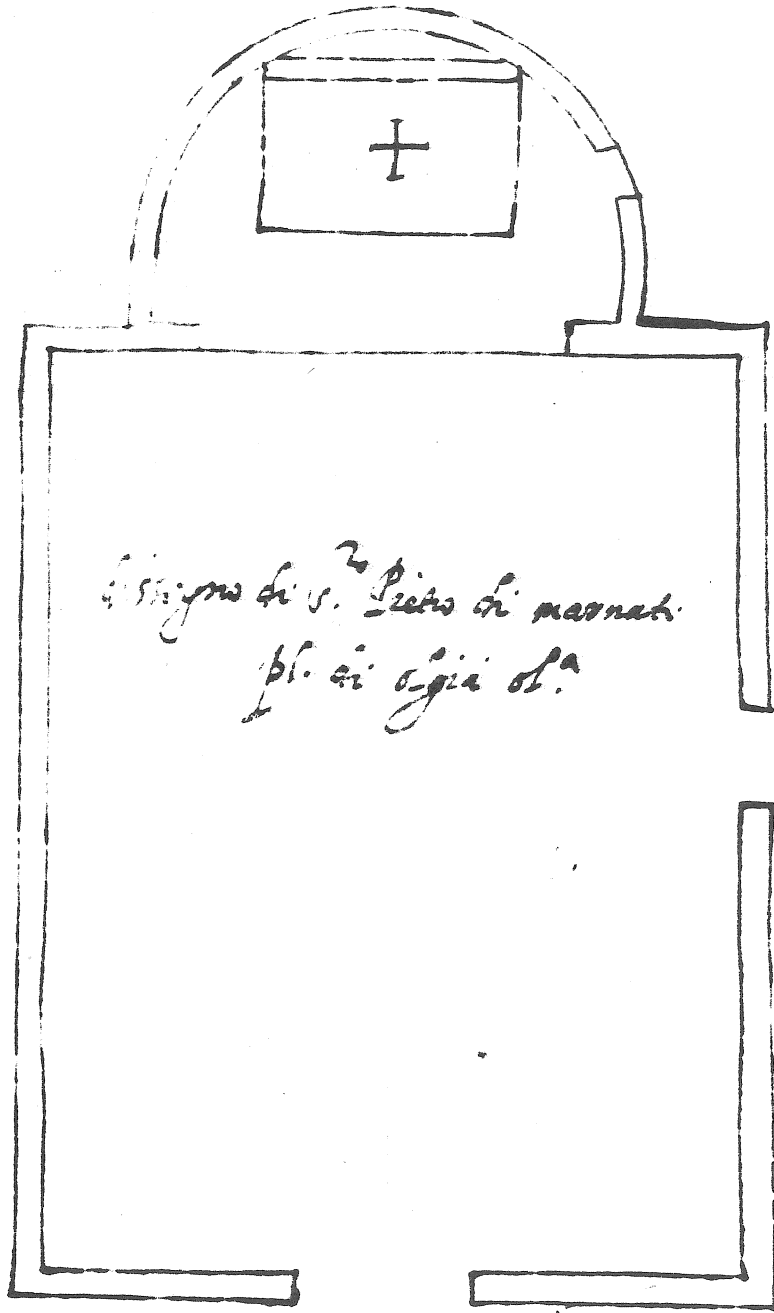 dissegno di s.to Pietro di marnati
pl. di olgià ol.a